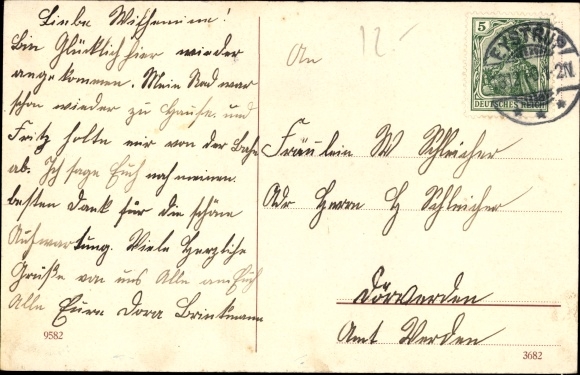 Liebe Wilhemine!
Bin Glücklich hier wieder
angekommen. Mein Rad war
schon wieder zu Hause. und
Fritz holte mir von der Bahn
ab. Ich sage Euch noch meinen
besten Dank für die schöne
Aufwartung. Viele Herzliche
Grüße von uns Alle an Euch
Alle Eure Dora Brinkmann
9582
12-
An
Fräulein W Schleicher
Adr Herrn H Schleicher
Dörverden
Amt Verden
3682
5
DEUTSCHES REICH
EYSTRUP